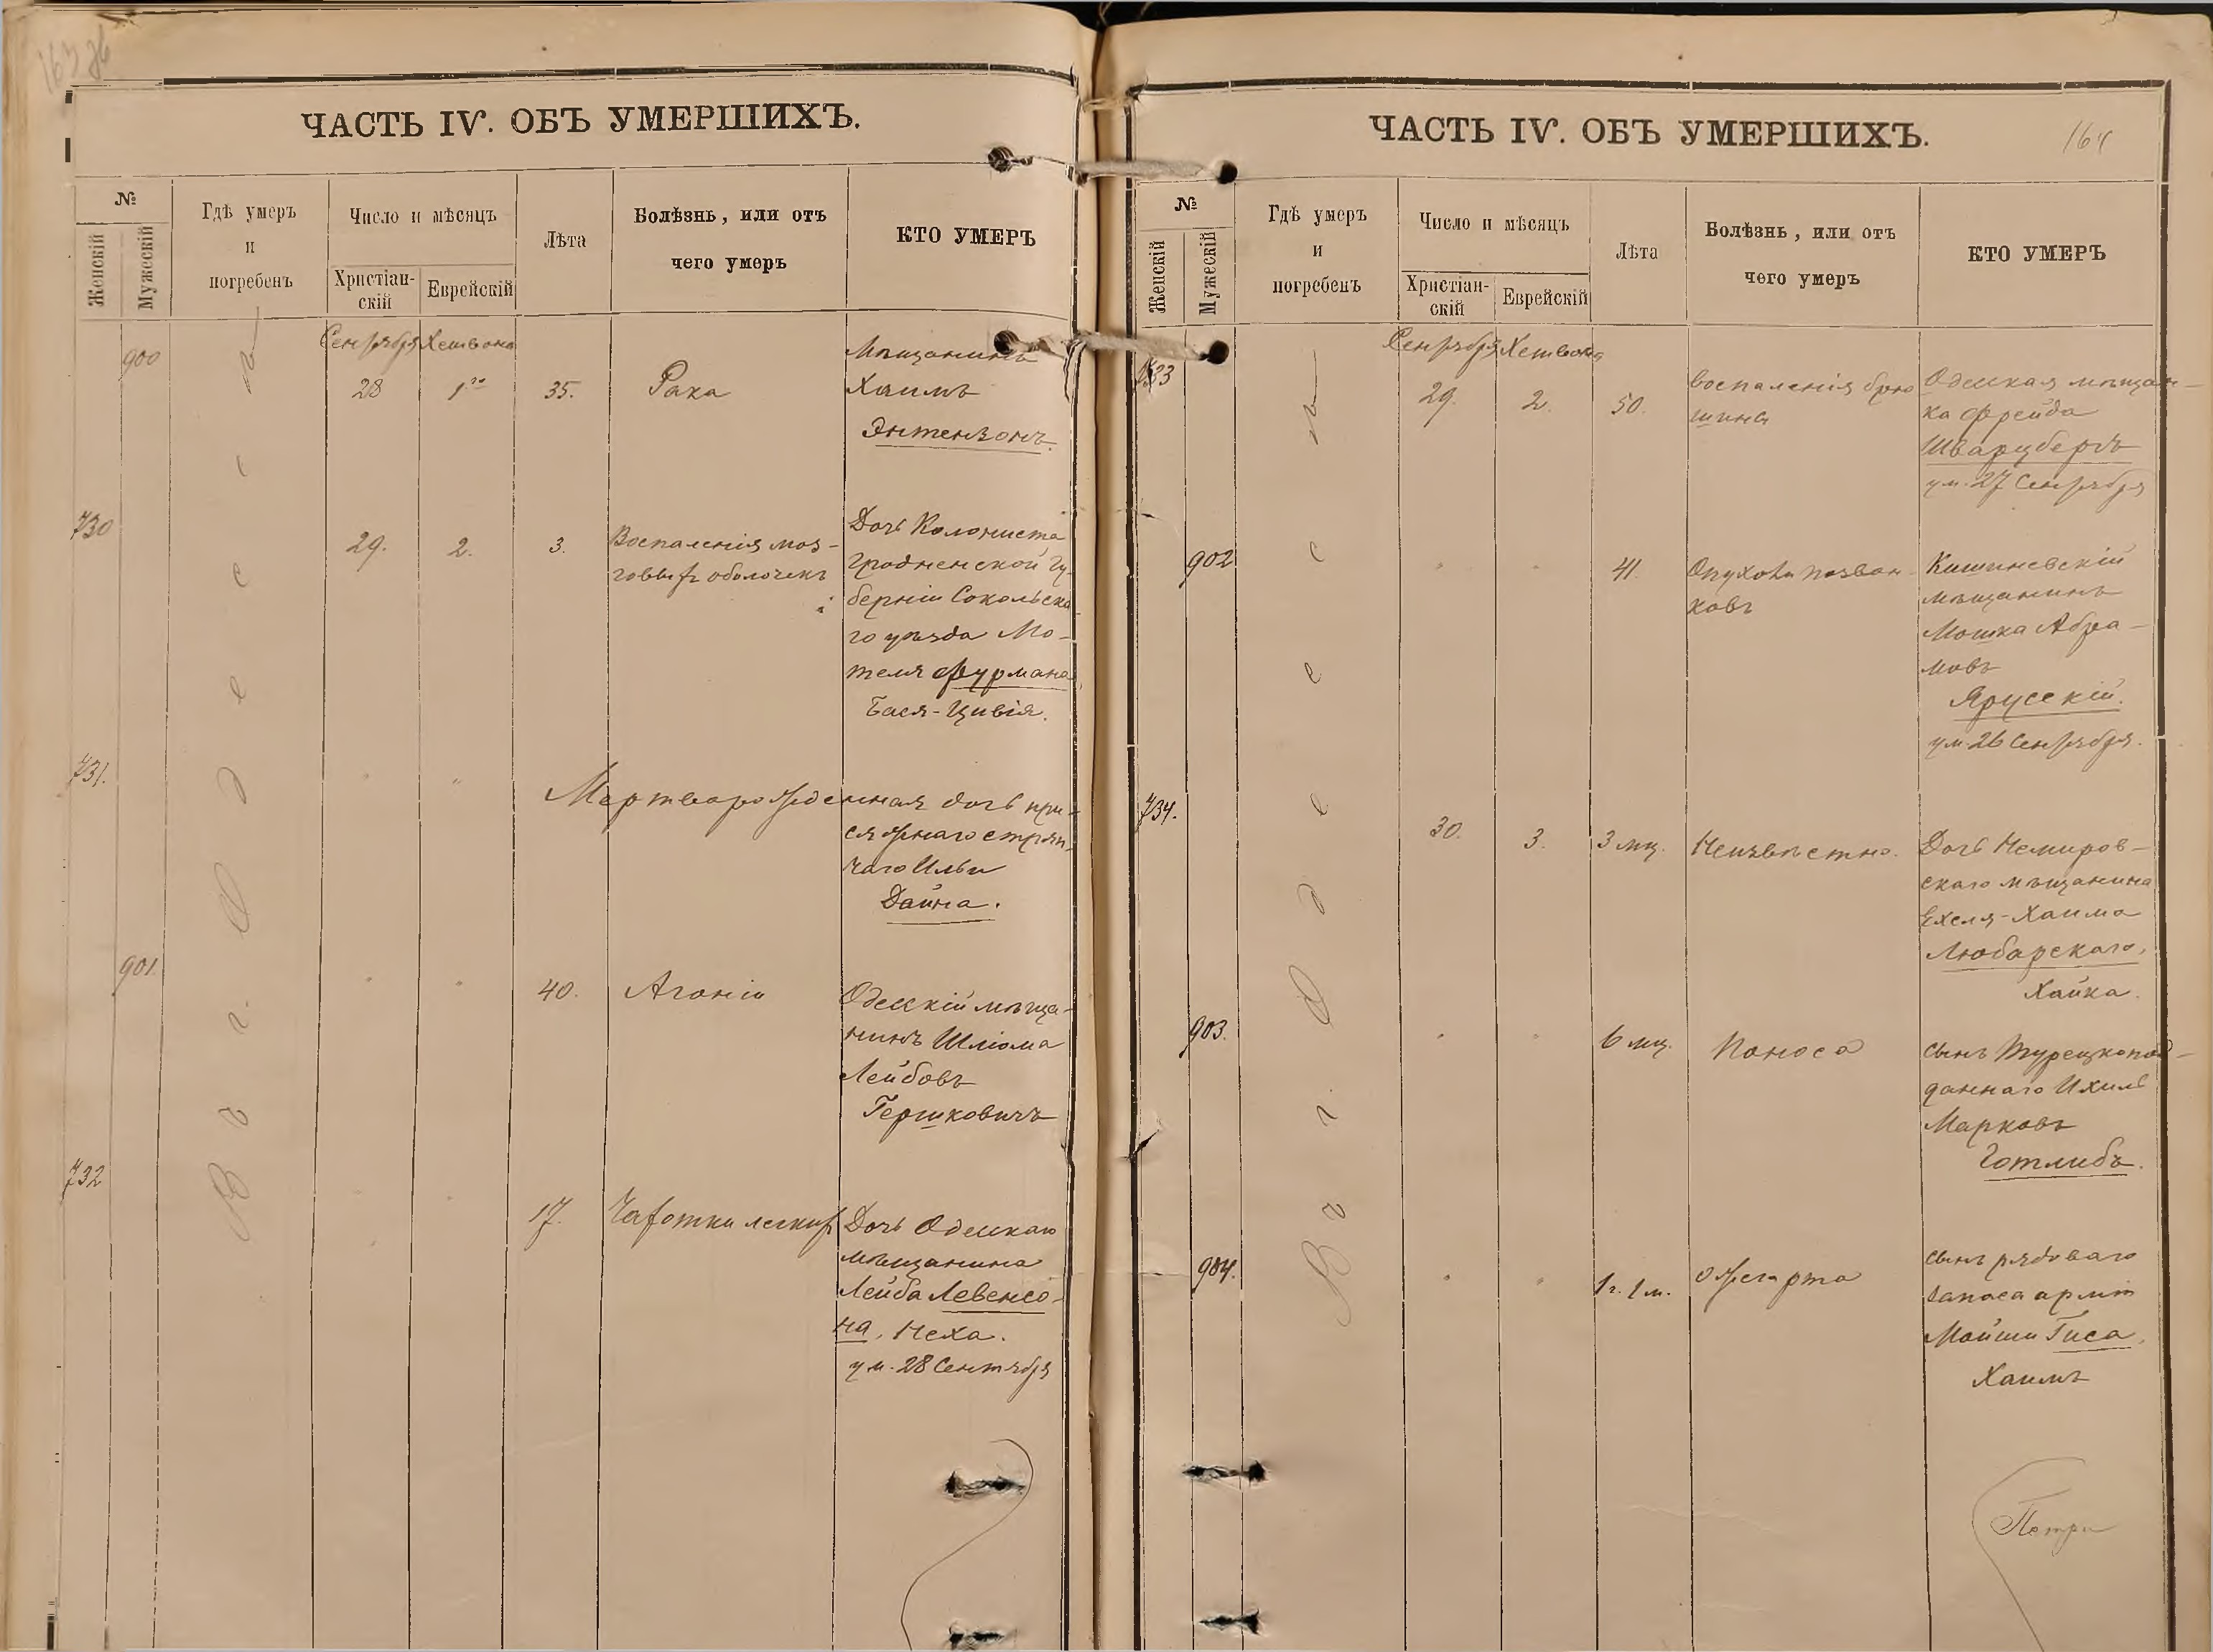 163 об
ЧАСТЬ IV. ОБЪ УМЕРШИХЪ.
№
Женскій
Мужескій
Гдѣ умеръ
и
погребенъ
Число и мѣсяцъ
Христіан-
скій
Еврейскій
Лѣта
Болѣзнь, или отъ
чего умеръ
КТО УМЕРЪ
Сентября Хешвона
900
28
1го
35.
Рака
Мѣщанинъ
Хаимъ
Энтензонъ.
В г. Одессѣ
730
29.
2.
3.
Воспаленія моз-
говыхъ оболочекъ
Дочь Колониста
Гродненской Гу-
берніи Сокольска-
го уѣзда Мо-
теля Фурмана
Бася-Цивія.
731.
"
"
Мертворожденная дочь при-
сяжнаго стряп-
чаго Ильи
Дайна.
901.
"
"
40.
Агоніи
Одесскій мѣща-
нинъ Шліома
Лейбовъ
Гершковичъ
732
17.
Чахотки легкихъ
Дочь Одесскаго
мѣщанина
Лейба Левенсо-
на, Неха.
ум. 28 Сентября
ЧАСТЬ IV. ОБЪ УМЕРШИХЪ.
164
№
Женскій
Мужескій
Гдѣ умеръ
и
погребенъ
Число и мѣсяцъ
Христіан-
скій
Еврейскій
Лѣта
Болѣзнь, или отъ
чего умеръ
КТО УМЕРЪ
Сентября Хешвона
733
29.
2.
50.
воспаленія брю
шины
Одесская мѣщан-
ка Фрейда
Шварцбергъ
ум. 27 Сентября
В г. Одессѣ
902
"
"
41.
Опухоли позвон-
ковъ
Кишиневскій
мѣщанинъ
Мошка Абра-
мовъ
Ярусскій.
ум. 26 Сентября.
734.
30.
3.
3 мц.
Неизвѣстно.
Дочь Немиров-
скаго мѣщанина
Ехеля-Хаима
Любарскаго,
Хайка.
903.
"
"
6 мц.
Поноса
сынъ Турецкопод-
даннаго Ихиль
Марковъ
Готлибъ.
904.
"
"
1 г. 1 м.
сынъ рядоваго
запаса арміи
Мойши Гиса,
Хаимъ